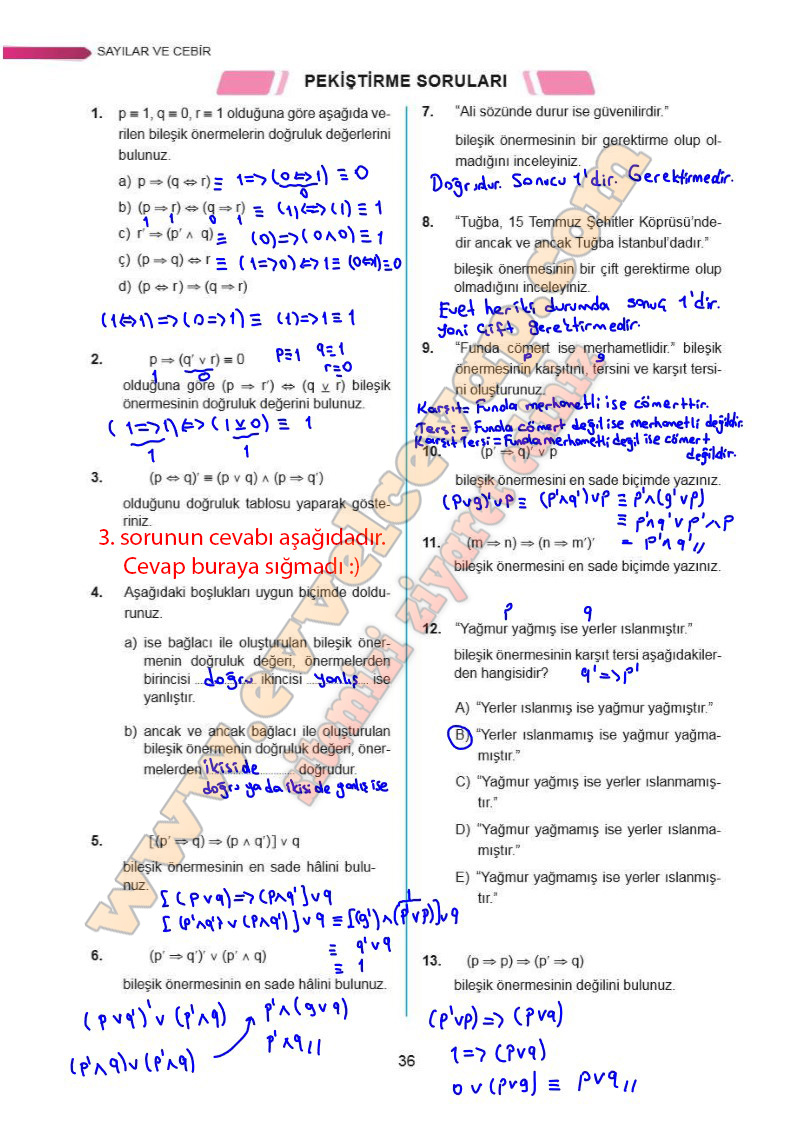 SAYILAR VE CEBİR
PEKİŞTİRME SORULARI
1. p ≡ 1, q ≡ 0, r ≡ 1 olduğuna göre aşağıda ve-
rilen bileşik önermelerin doğruluk değerlerini
bulunuz.
a) p ⇒ (q ⇔ r) ≡ 1=>(0<=>1) ≡ 0
0
b) (p ⇒ r) ⇔ (q ⇒ r) ≡ (1)<=>(1) ≡ 1
1 1 0 1
c) r′ ⇒ (p′ ∧ q) ≡ (0)=>(0∧0) ≡ 1
ç) (p ⇒ q) ⇔ r ≡ (1=>0)<=>1 ≡ (0<=>1) ≡ 0
d) (p ⇔ r) ⇒ (q ⇒ r)
(1<=>1)=>(0=>1) ≡ (1)=>1 ≡ 1
2. p ⇒ (q′ ∨ r) ≡ 0 p≡1 q≡1
1 0 r≡0
olduğuna göre (p ⇒ r′) ⇔ (q ⊻ r) bileşik
önermesinin doğruluk değerini bulunuz.
(1=>1)<=>(1⊻0) ≡ 1
1 1
3. (p ⇔ q)′ ≡ (p ∨ q) ∧ (p ⇒ q′)
olduğunu doğruluk tablosu yaparak göste-
riniz.
3. sorunun cevabı aşağıdadır.
Cevap buraya sığmadı :)
4. Aşağıdaki boşlukları uygun biçimde doldu-
runuz.
a) ise bağlacı ile oluşturulan bileşik öner-
menin doğruluk değeri, önermelerden
birincisi doğru ikincisi yanlış ise
yanlıştır.
b) ancak ve ancak bağlacı ile oluşturulan
bileşik önermenin doğruluk değeri, öner-
melerden ikiside doğrudur.
doğru ya da ikiside yanlış ise
5. [(p′ ⇒ q) ⇒ (p ∧ q′)] ∨ q
bileşik önermesinin en sade hâlini bulu-
nuz.
[(p∨q)=>(p∧q′)]∨q
1
[(p′∧q′)∨(p∧q′)]∨q ≡ [(q′)∧(p′∨p)]∨q
≡ q′∨q
≡ 1
6. (p′ ⇒ q′)′ ∨ (p′ ∧ q)
bileşik önermesinin en sade hâlini bulunuz.
(p∨q′)′∨(p′∧q)
(p′∧q)∨(p′∧q)
p′∧(q∨q)
p′∧q//
7. “Ali sözünde durur ise güvenilirdir.”
bileşik önermesinin bir gerektirme olup ol-
madığını inceleyiniz.
Doğrudur. Sonucu 1'dir. Gerektirmedir.
8. “Tuğba, 15 Temmuz Şehitler Köprüsü’nde-
dir ancak ve ancak Tuğba İstanbul’dadır.”
bileşik önermesinin bir çift gerektirme olup
olmadığını inceleyiniz.
Evet her iki durumda sonuç 1'dir.
yani çift gerektirmedir.
9. “Funda cömert ise merhametlidir.” bileşik
p q
önermesinin karşıtını, tersini ve karşıt tersi-
ni oluşturunuz.
Karşıt = Funda merhametli ise cömerttir.
Tersi = Funda cömert değil ise merhametli değildir.
Karşıt Tersi = Funda merhametli değil ise cömert
değildir.
10. (p′ ⇒ q)′ ∨ p
bileşik önermesini en sade biçimde yazınız.
(p∨q)′∨p ≡ (p′∧q′)∨p ≡ p′∧(q′∨p)
≡ p′∧q′∨p′∧p
= p′∧q′//
11. (m ⇒ n) ⇒ (n ⇒ m′)′
bileşik önermesini en sade biçimde yazınız.
p q
12. “Yağmur yağmış ise yerler ıslanmıştır.”
bileşik önermesinin karşıt tersi aşağıdakiler-
den hangisidir? q′=>p′
A) “Yerler ıslanmış ise yağmur yağmıştır.”
B) “Yerler ıslanmamış ise yağmur yağma-
mıştır.”
C) “Yağmur yağmış ise yerler ıslanmamış-
tır.”
D) “Yağmur yağmamış ise yerler ıslanma-
mıştır.”
E) “Yağmur yağmamış ise yerler ıslanmış-
tır.”
13. (p ⇒ p) ⇒ (p′ ⇒ q)
bileşik önermesinin değilini bulunuz.
(p′∨p)=>(p∨q)
1=>(p∨q)
0∨(p∨q) ≡ p∨q//
36
www.evvelcevap.com
sitemizi ziyaret ediniz